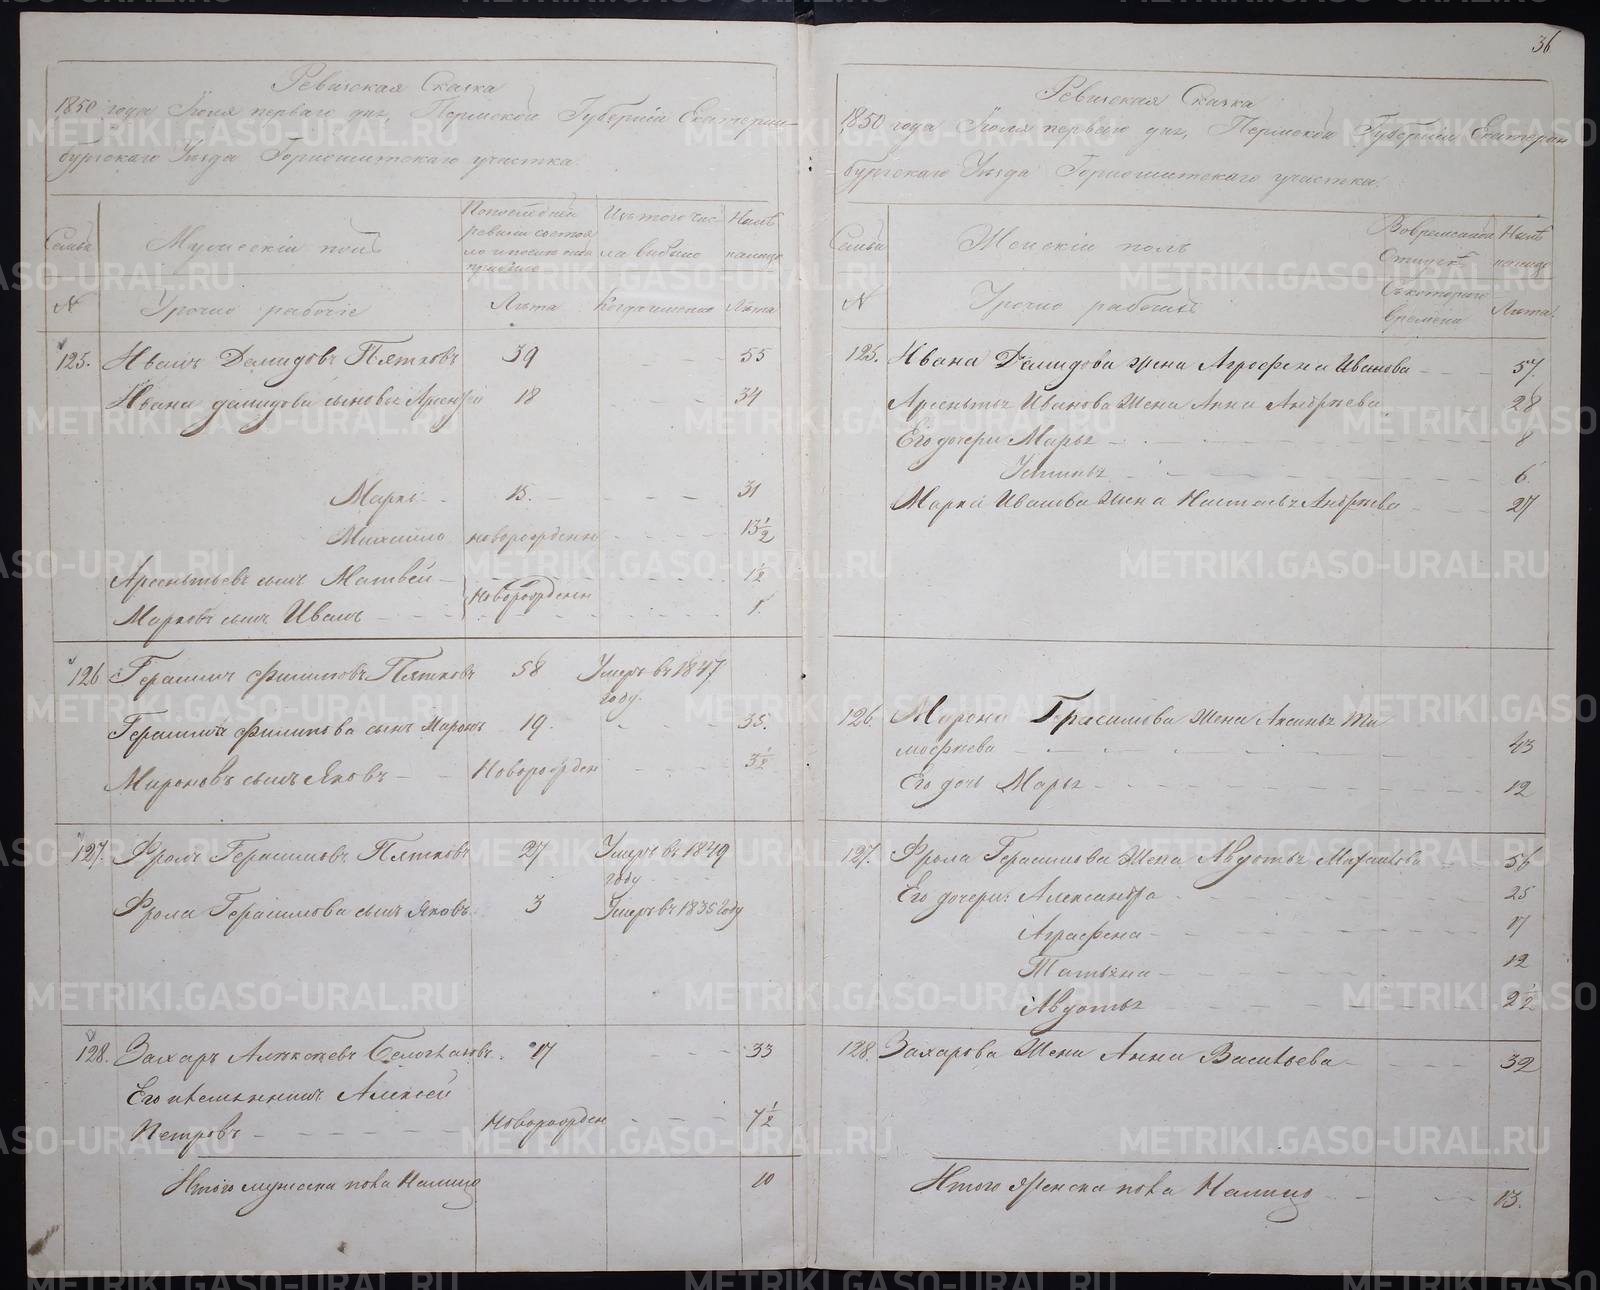 36
Ревизская Сказка
1850 года Іюня перваго дня, Пермской Губерніи Екатерин-
бургскаго Уѣзда Горнощитскаго участка.
Семьи
Мужескій полъ
По последней
ревизіи состоя
ло и после того
прибыло
Изъ того чис
ла выбыло
Нынѣ
налицо
№
Урочно рабочіе
Лѣта
Когда именно
Лѣта
125. Иванъ Демидовъ Пятковъ 39 55
Ивана Демидова сыновья Арсентій 18 34
Марко 15. 31
Михайло новорожденн 13½
Арсентьевъ сынъ Матвей ½
Новорожденн
Марковъ сынъ Иванъ 1.
126 Герасимъ Филиповъ Пятковъ 58 Умеръ въ 1847
году.
Герасима Филипова сынъ Миронъ 19. 35.
Мироновъ сынъ Яковъ Новорожден 3½
127. Фролъ Герасимовъ Пятковъ 27 Умеръ въ 1849
году
Фрола Герасимова сынъ Яковъ 3 Умеръ въ 1835 году
128. Захаръ 17 33
Его племянникъ Алексей
Петровъ Новорожден 7½
Итого мужеска пола Налицо 10
Ревизская Сказка
1850 года Іюня перваго дня, Пермской Губерніи Екатерин
бургскаго Уѣзда Горнощитскаго участка.
Семьи
Женскій полъ
Во временной
Отлучкѣ
Нынѣ
налицо
№
Урочно рабочихъ
Съ котораго
времени
Лѣта
125. Ивана Демидова жена Агрофена Иванова 57.
Арсентья Иванова жена Анна Андреева 28
Его дочери Марья 8
Устинья 6.
Марка Иванова жена Настасья Андреева 27
126. Мирона Герасимова жена Аксинья Ти
мофеева 43
Его дочь Марья 12
127. Фрола Герасимова жена Авдотья 56
Его дочери: Александра 25
Аграфена 17
Татьяна 12
Авдотья 2½
128. Захарова жена Анна Васильева 32
Итого женска пола Налицо 13.
METRIKI.GASO-URAL.RU